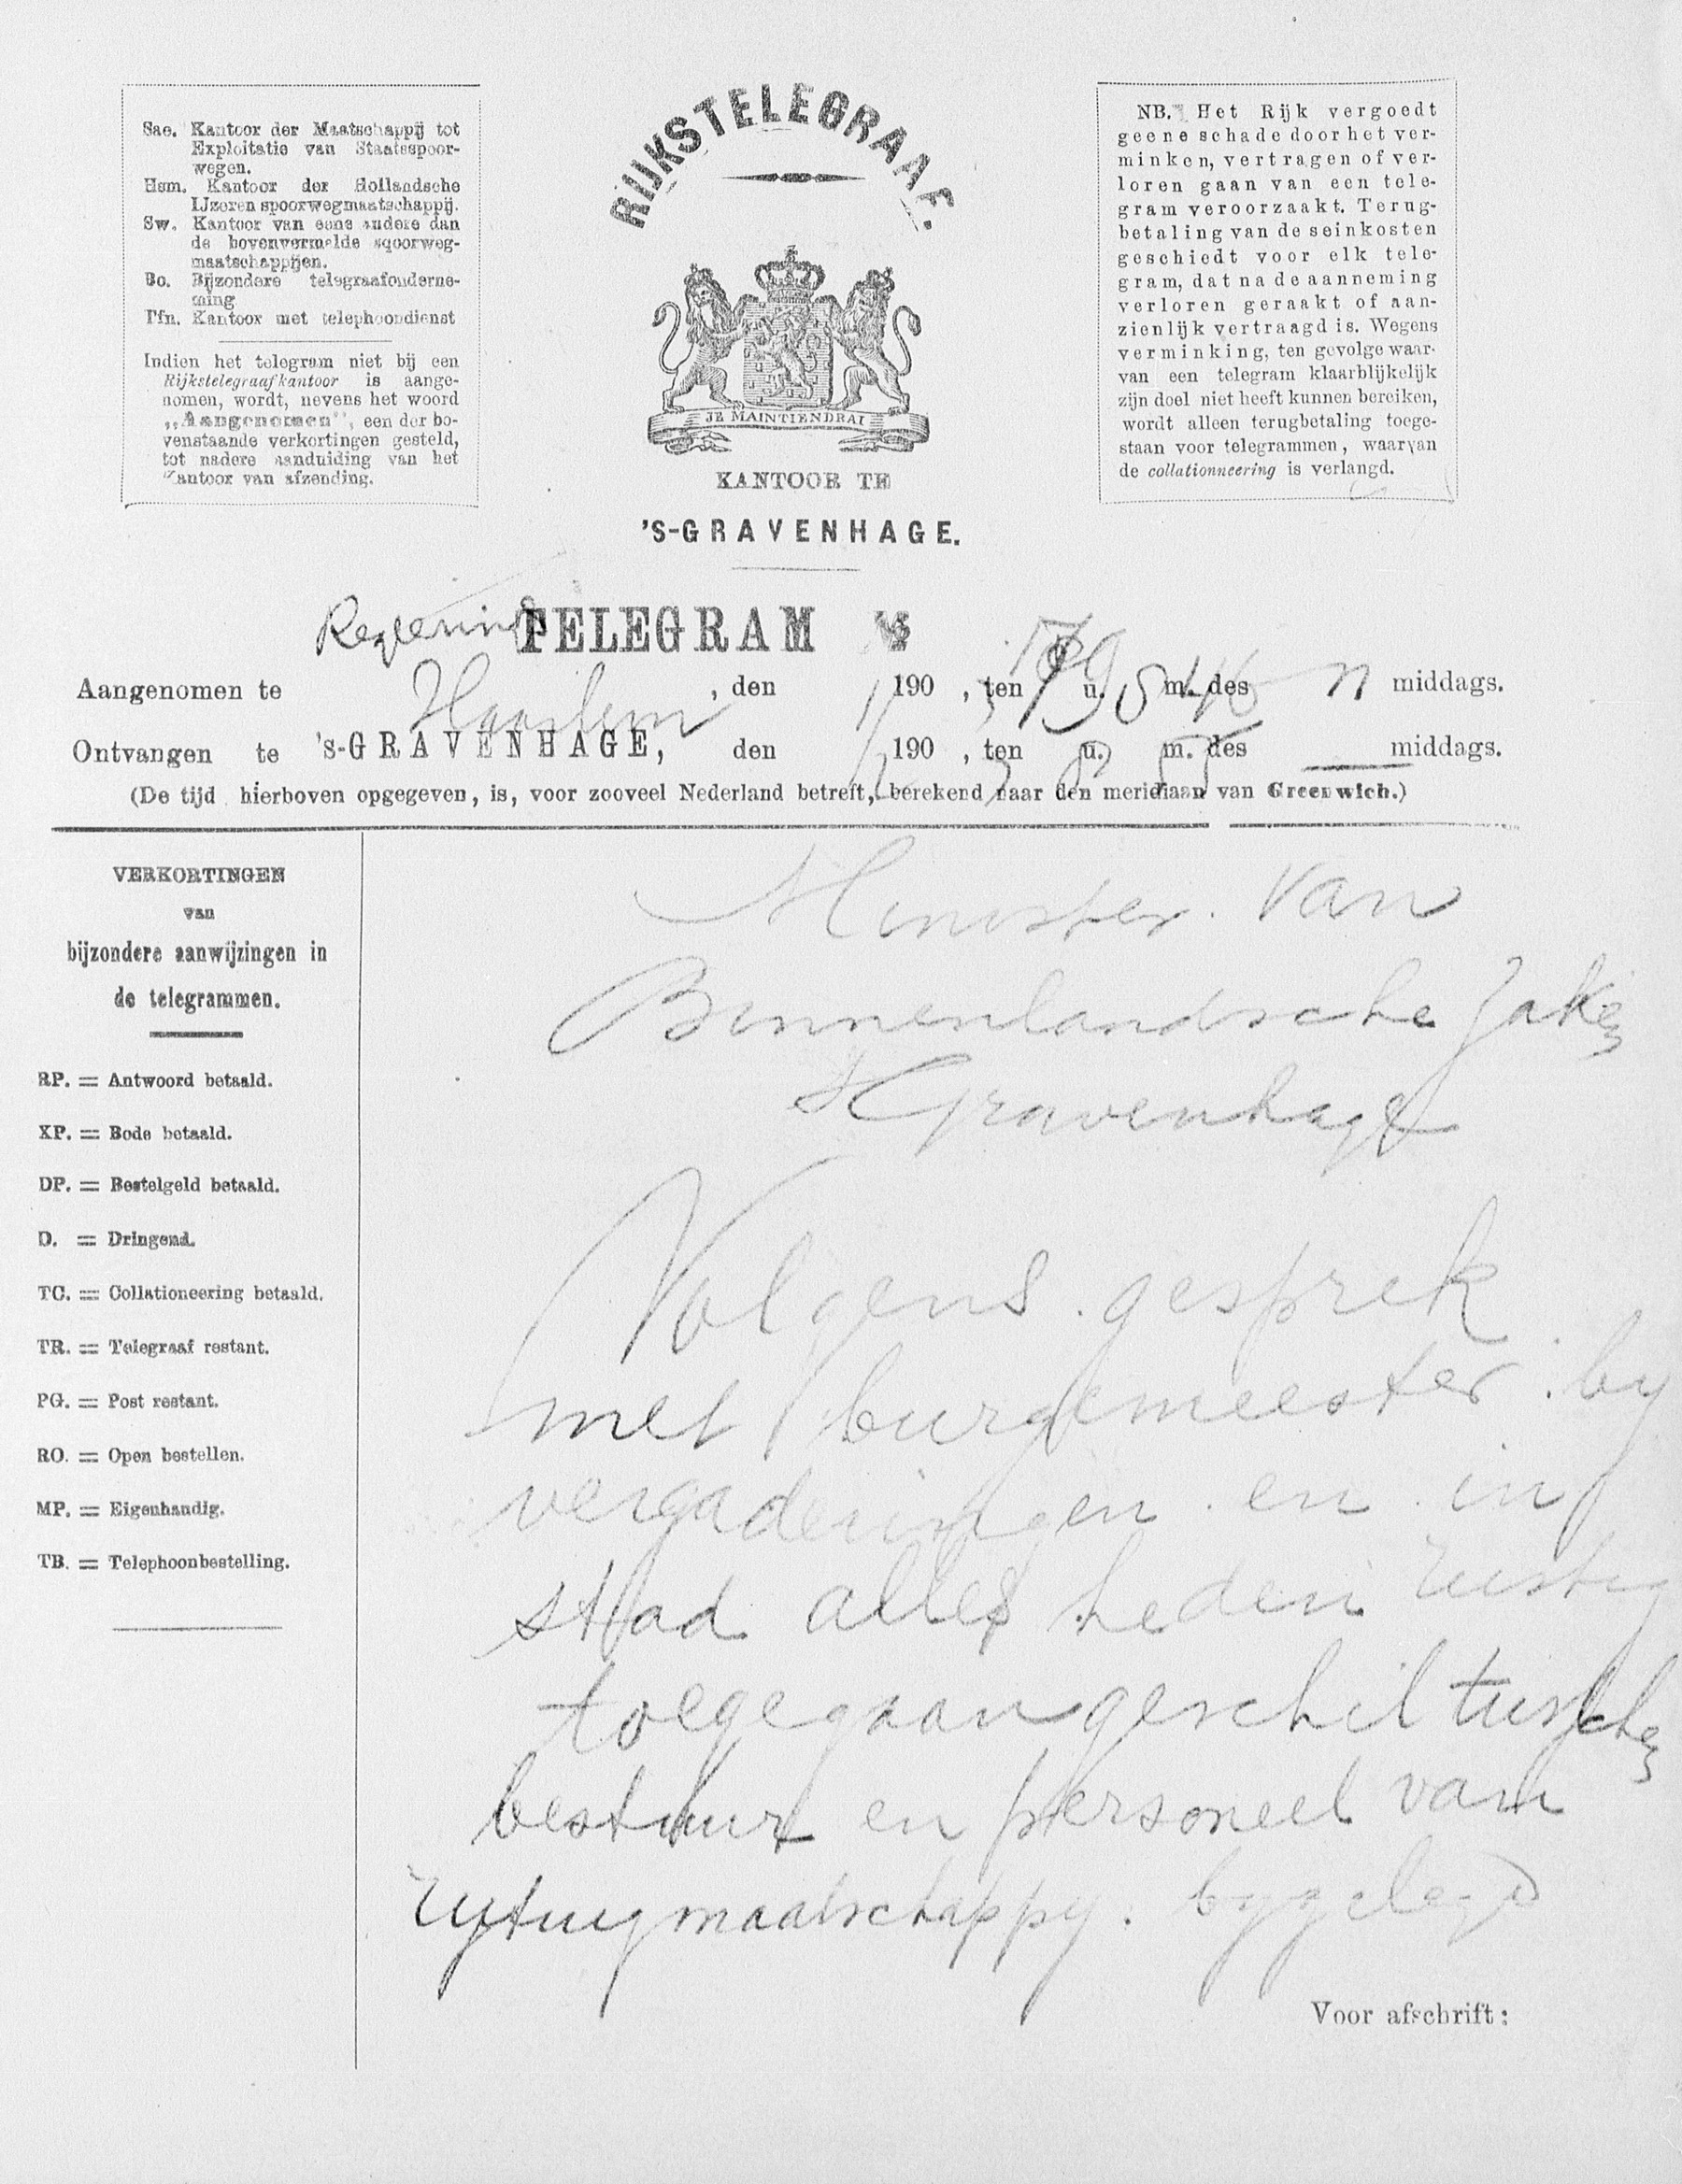 Sae. Kantoor der Maatschappij tot
Exploitatie van Staatsspoor-
wegen.
Hsm. Kantoor der Hollandsche
IJzeren spoorwegmaatschappij.
Sw. Kantoor van eene andere dan
de bovenvermelde spoorweg-
maatschappijen.
Bo. Bijzondere telegraafonderne-
ming
Tfn. Kantoor met telephoondienst
Indien het telegram niet bij een
Rijkstelegraafkantoor is aange-
nomen, wordt, nevens het woord
„Aangenomen", een der bo-
venstaande verkortingen gesteld,
tot nadere aanduiding van het
Kantoor van afzending.
RIJKSTELEGRAAF.
JE MAINTIENDRAI
KANTOOR TE
'S-GRAVENHAGE.
NB. Het Rijk vergoedt
geene schade door het ver-
minken, vertragen of ver-
loren gaan van een tele-
gram veroorzaakt. Terug-
betaling van de seinkosten
geschiedt voor elk tele-
gram, dat na de aanneming
verloren geraakt of aan-
zienlijk vertraagd is. Wegens
verminking, ten gevolge waar-
van een telegram klaarblijkelijk
zijn doel niet heeft kunnen bereiken,
wordt alleen terugbetaling toege-
staan voor telegrammen, waarvan
de collationneering is verlangd.
Regeerings TELEGRAM
Aangenomen te Haarlem, den 190 , ten u. m. des n middags.
Ontvangen te 's-GRAVENHAGE, den 190 , ten u. m. des middags.
(De tijd hierboven opgegeven, is, voor zooveel Nederland betreft, berekend naar den meridiaan van Greenwich.)
VERKORTINGEN
van
bijzondere aanwijzingen in
de telegrammen.
RP. = Antwoord betaald.
XP. = Bode betaald.
DP. = Bestelgeld betaald.
D. = Dringend.
TC. = Collationeering betaald.
TR. = Telegraaf restant.
PG. = Post restant.
RO. = Open bestellen.
MP. = Eigenhandig.
TB. = Telephoonbestelling.
Minister van
Binnenlandsche Zaken
SGravenhage
Volgens gesprek
met burgemeester by
vergaderingen en in
stad alles heden rustig
toegegaan geschil tusschen
bestuur en personeel van
rytuigmaatschappy bygelegd
Voor afschrift: